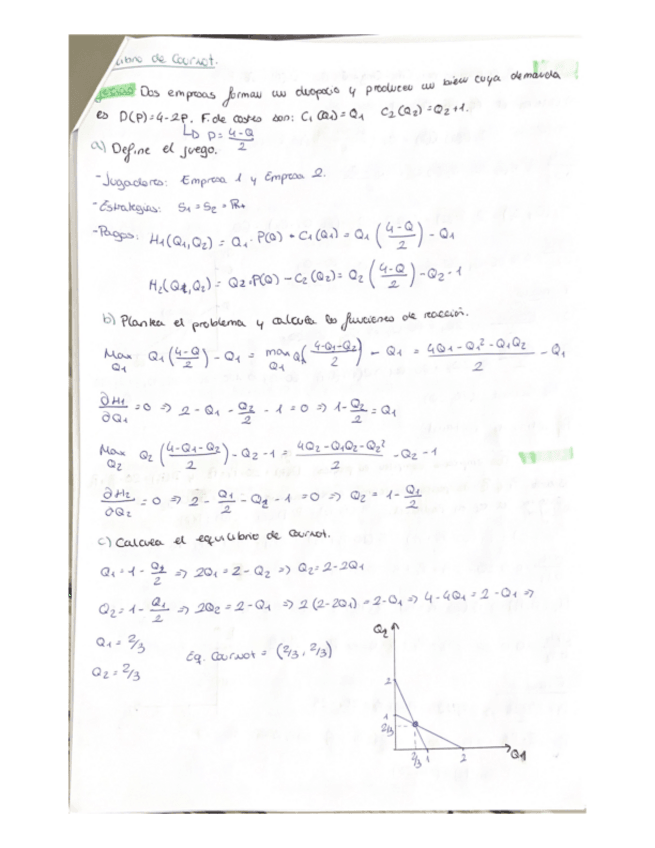 Libro de Cournot.
Dos empresas forman un duopolio y producen un bien cuya demanda
es D(P)=4-2P. F. de costes son: C₁(Q₁)=Q₁ C₂(Q₂)=Q₂+1.
↳ P=(4-Q)/2
a) Define el juego.
- Jugadores: Empresa 1 y Empresa 2.
- Estrategias: S₁=S₂=ℝ₊
- Pagos: H₁(Q₁,Q₂) = Q₁·P(Q) + C₁(Q₁) = Q₁((4-Q)/2) - Q₁
H₂(Q₁,Q₂) = Q₂·P(Q) - C₂(Q₂) = Q₂((4-Q)/2) - Q₂ - 1
b) Plantea el problema y calcula las funciones de reacción.
Max Q₁ Q₁((4-Q)/2) - Q₁ = max Q₁ Q₁((4-Q₁-Q₂)/2) - Q₁ = (4Q₁-Q₁²-Q₁Q₂)/2 - Q₁
∂H₁/∂Q₁ = 0 ⇒ 2 - Q₁ - Q₂/2 - 1 = 0 ⇒ 1 - Q₂/2 = Q₁
Max Q₂ Q₂((4-Q₁-Q₂)/2) - Q₂ - 1 = (4Q₂-Q₁Q₂-Q₂²)/2 - Q₂ - 1
∂H₂/∂Q₂ = 0 ⇒ 2 - Q₁/2 - Q₂ - 1 = 0 ⇒ Q₂ = 1 - Q₁/2
c) Calcula el equilibrio de Cournot.
Q₁ = 1 - Q₂/2 ⇒ 2Q₁ = 2 - Q₂ ⇒ Q₂ = 2-2Q₁
Q₂ = 1 - Q₁/2 ⇒ 2Q₂ = 2 - Q₁ ⇒ 2(2-2Q₁) = 2-Q₁ ⇒ 4-4Q₁ = 2-Q₁ ⇒
Q₁ = 2/3
Q₂ = 2/3
Eq. Cournot = (2/3, 2/3)
Q₂
2
1
2/3
2/3 1 2 Q₁